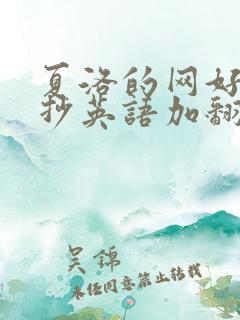 夏洛的网好
抄英語加翻
吴锦
未经同意禁止转载